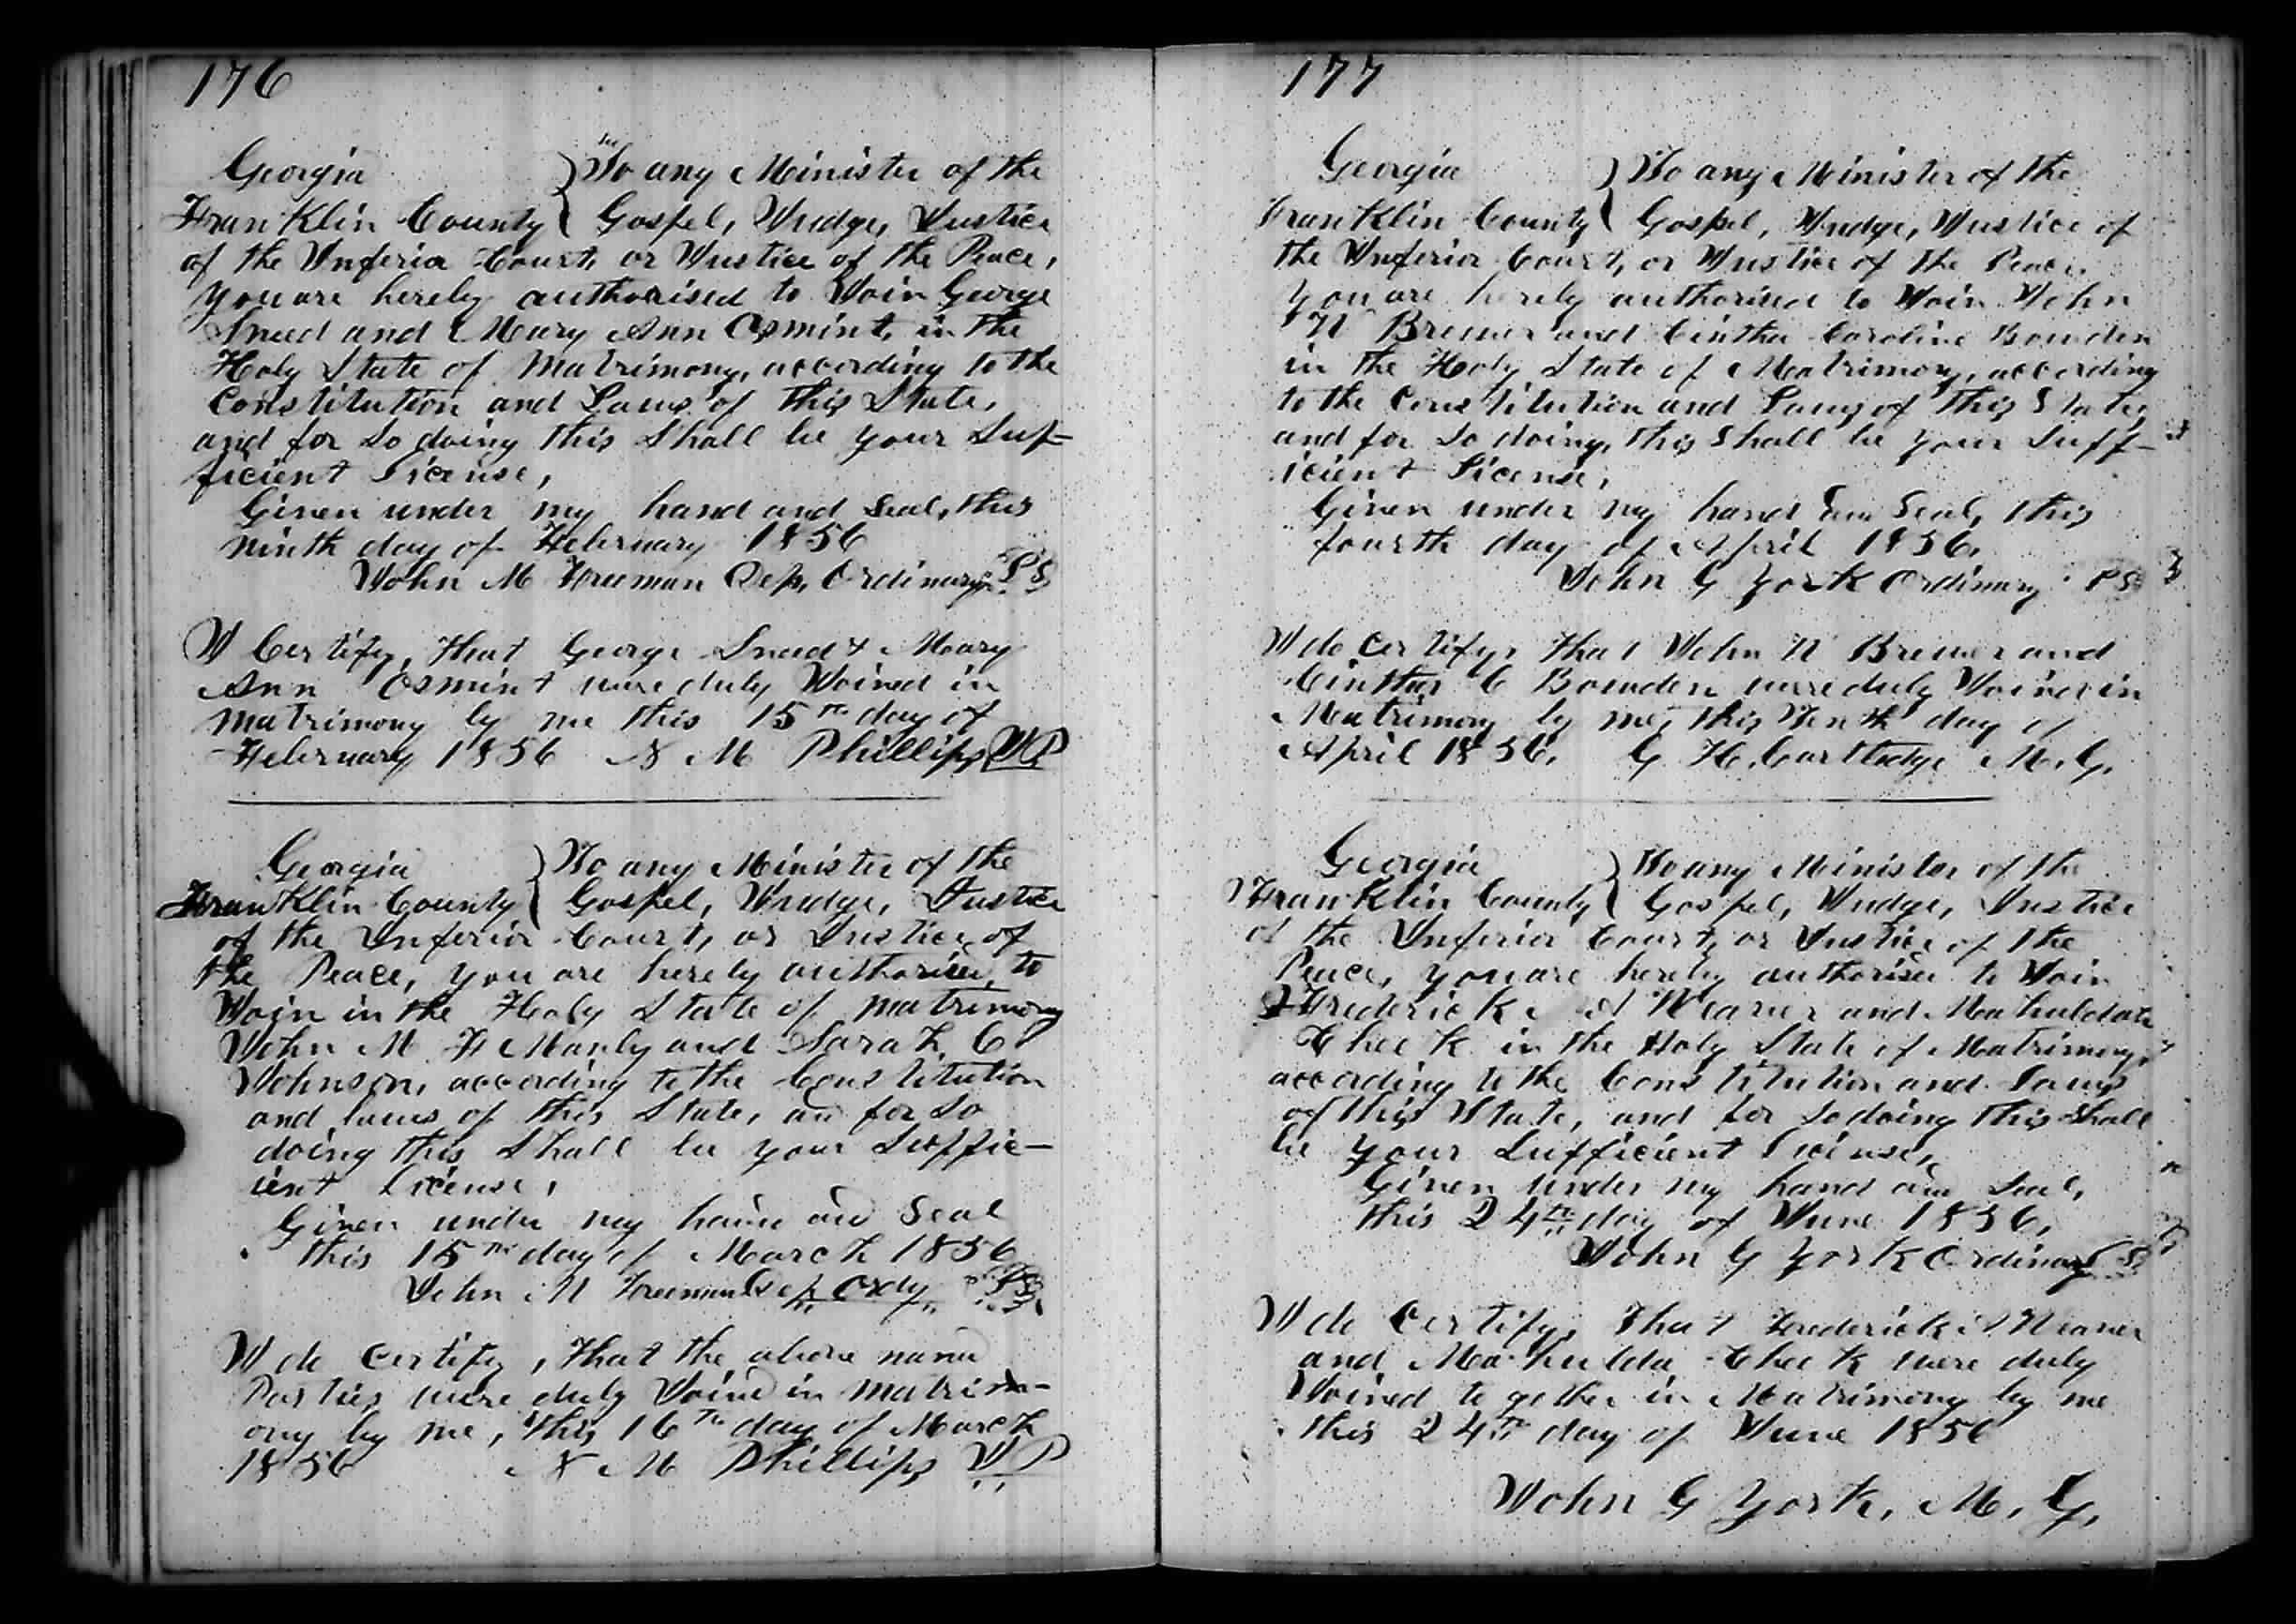 176
Georgia } To any Minister of the
Franklin County { Gospel, Judge, Justice
of the Inferior Court, or Justice of the Peace,
you are hereby authorised to Join George
Sneed and Mary Ann Osmint, in the
Holy State of Matrimony, according to the
Constitution and Laws of this State,
and for so doing this Shall be your Suf-
ficient License,
Given under my hand and Seal, this
ninth day of February 1856
John M Freeman Dep, Ordinary LS
I Certify, that George Sneed & Mary
Ann Osmint were duly Joined in
matrimony by me this 15th day of
February 1856 N M Phillips JP
Georgia } To any Minister of the
Franklin County { Gospel, Judge, Justice
of the Inferior Court, or Justice of
the Peace, you are hereby authorised to
Join in the Holy State of matrimony
John M F Manly and Sarah C
Johnson, according to the Constitution
and laws of this State, and for so
doing this Shall be your Suffic-
ient License,
Given under my hand and Seal
this 15th day of March 1856
John M Freeman Dep Ordy LS
I do Certify, that the above named
Parties were duly Joined in matrim-
ony by me, this 16th day of March
1856 N M Phillips JP
177
Georgia } To any Minister of the
Franklin County { Gospel, Judge, Justice of
the Inferior Court, or Justice of the Peace
you are hereby authorised to Join John
N Brewer and Cintha Caroline Bowden
in the Holy State of Matrimony, according
to the Constitution and Laws of this State,
and for so doing, this Shall be your Suff-
icient License,
Given under my hand and Seal, this
fourth day of April 1856,
John G York Ordinary LS
I do Certify, that John N Brewer and
Cintha C Bowden were duly Joined in
Matrimony by me, this Tenth day of
April 1856, G H, Cartledge M, G,
Georgia } To any Minister of the
Franklin County { Gospel, Judge, Justice
of the Inferior Court, or Justice of the
Peace, you are hereby authorised to Join
Frederick A Weaver and
Cheek in the Holy State of Matrimony,
according to the Constitution and Laws
of this State, and for so doing this shall
be your Sufficient License,
Given under my hand and Seal,
this 24th day of June 1856,
John G York Ordinary LS
I do Certify, that Frederick A Weaver
and Mahulda Cheek were duly
Joined together in Matrimony by me
this 24th day of June 1856
John G York, M, G,